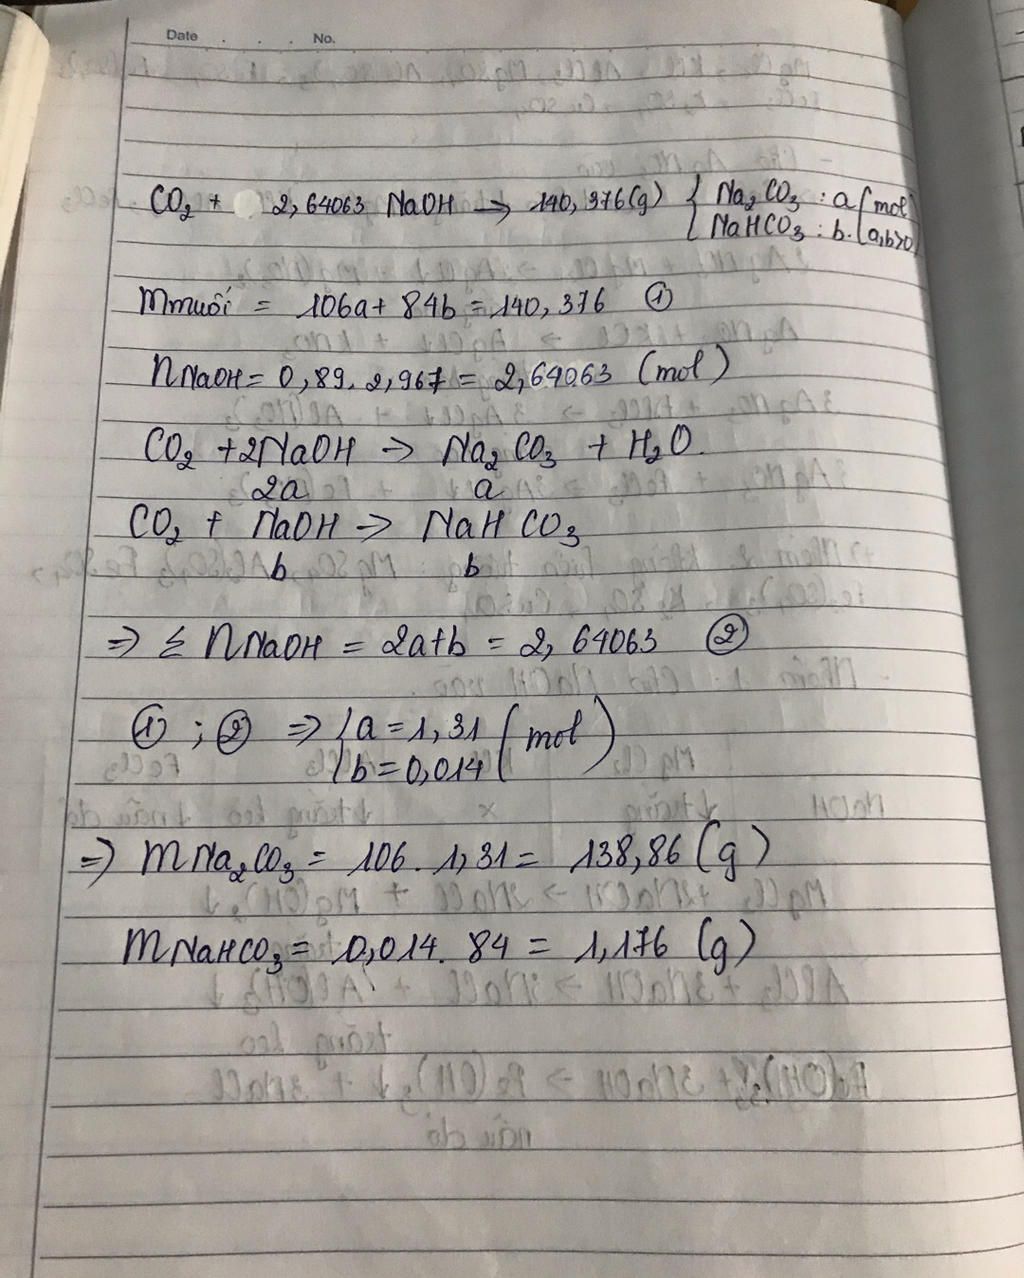 Date . . . No.
CO₂ + 2,64063 NaOH → 140,376(g) { Na₂CO₃ : a (mol)
NaHCO₃ : b. (a,b>0)
mmuối = 106a + 84b = 140,376 ①
nNaOH = 0,89. 2,967 = 2,64063 (mol)
CO₂ + 2NaOH → Na₂CO₃ + H₂O.
2a a
CO₂ + NaOH → NaHCO₃
b b
⇒ Σ nNaOH = 2a+b = 2,64063 ②
① ; ② ⇒ { a = 1,31 (mol)
b = 0,014
⇒ mNa₂CO₃ = 106 . 1,31 = 138,86 (g)
mNaHCO₃ = 0,014. 84 = 1,176 (g)